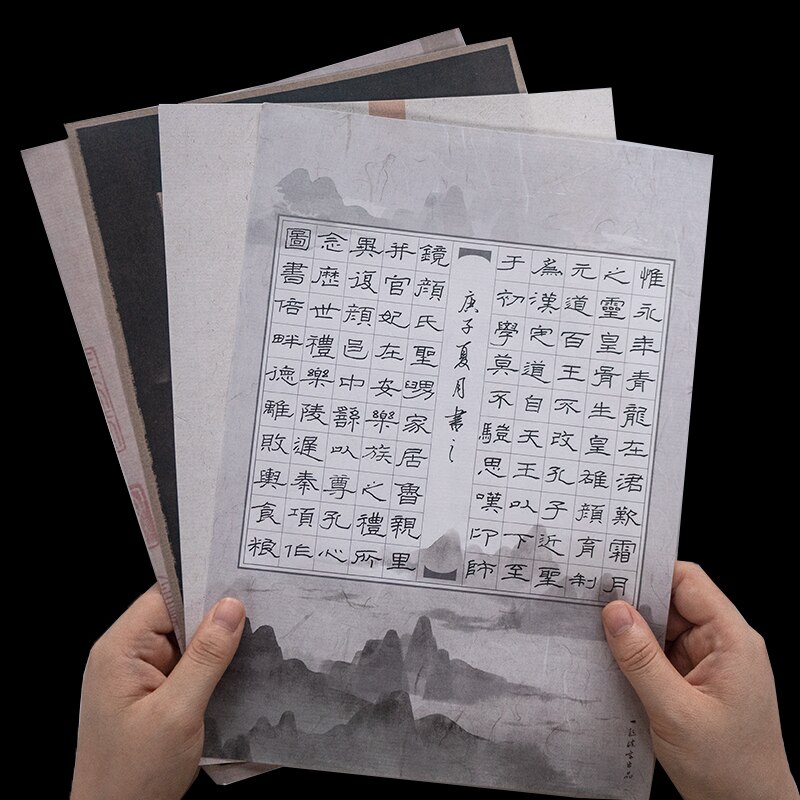 惟永年青龍在涒歎霜月
之靈皇胥生皇雄顏育制
元道百王不改孔子近聖
為漢定道自天王以下至
于初學莫不驥思嘆卬師
庚子夏月書之
鏡顏氏聖舅家居魯親里
并官妃在安樂族之禮所
異復顏邑中繇以尊孔心
念歷世禮樂陵遲秦項作
圖書倍畔德離敗輿食糧